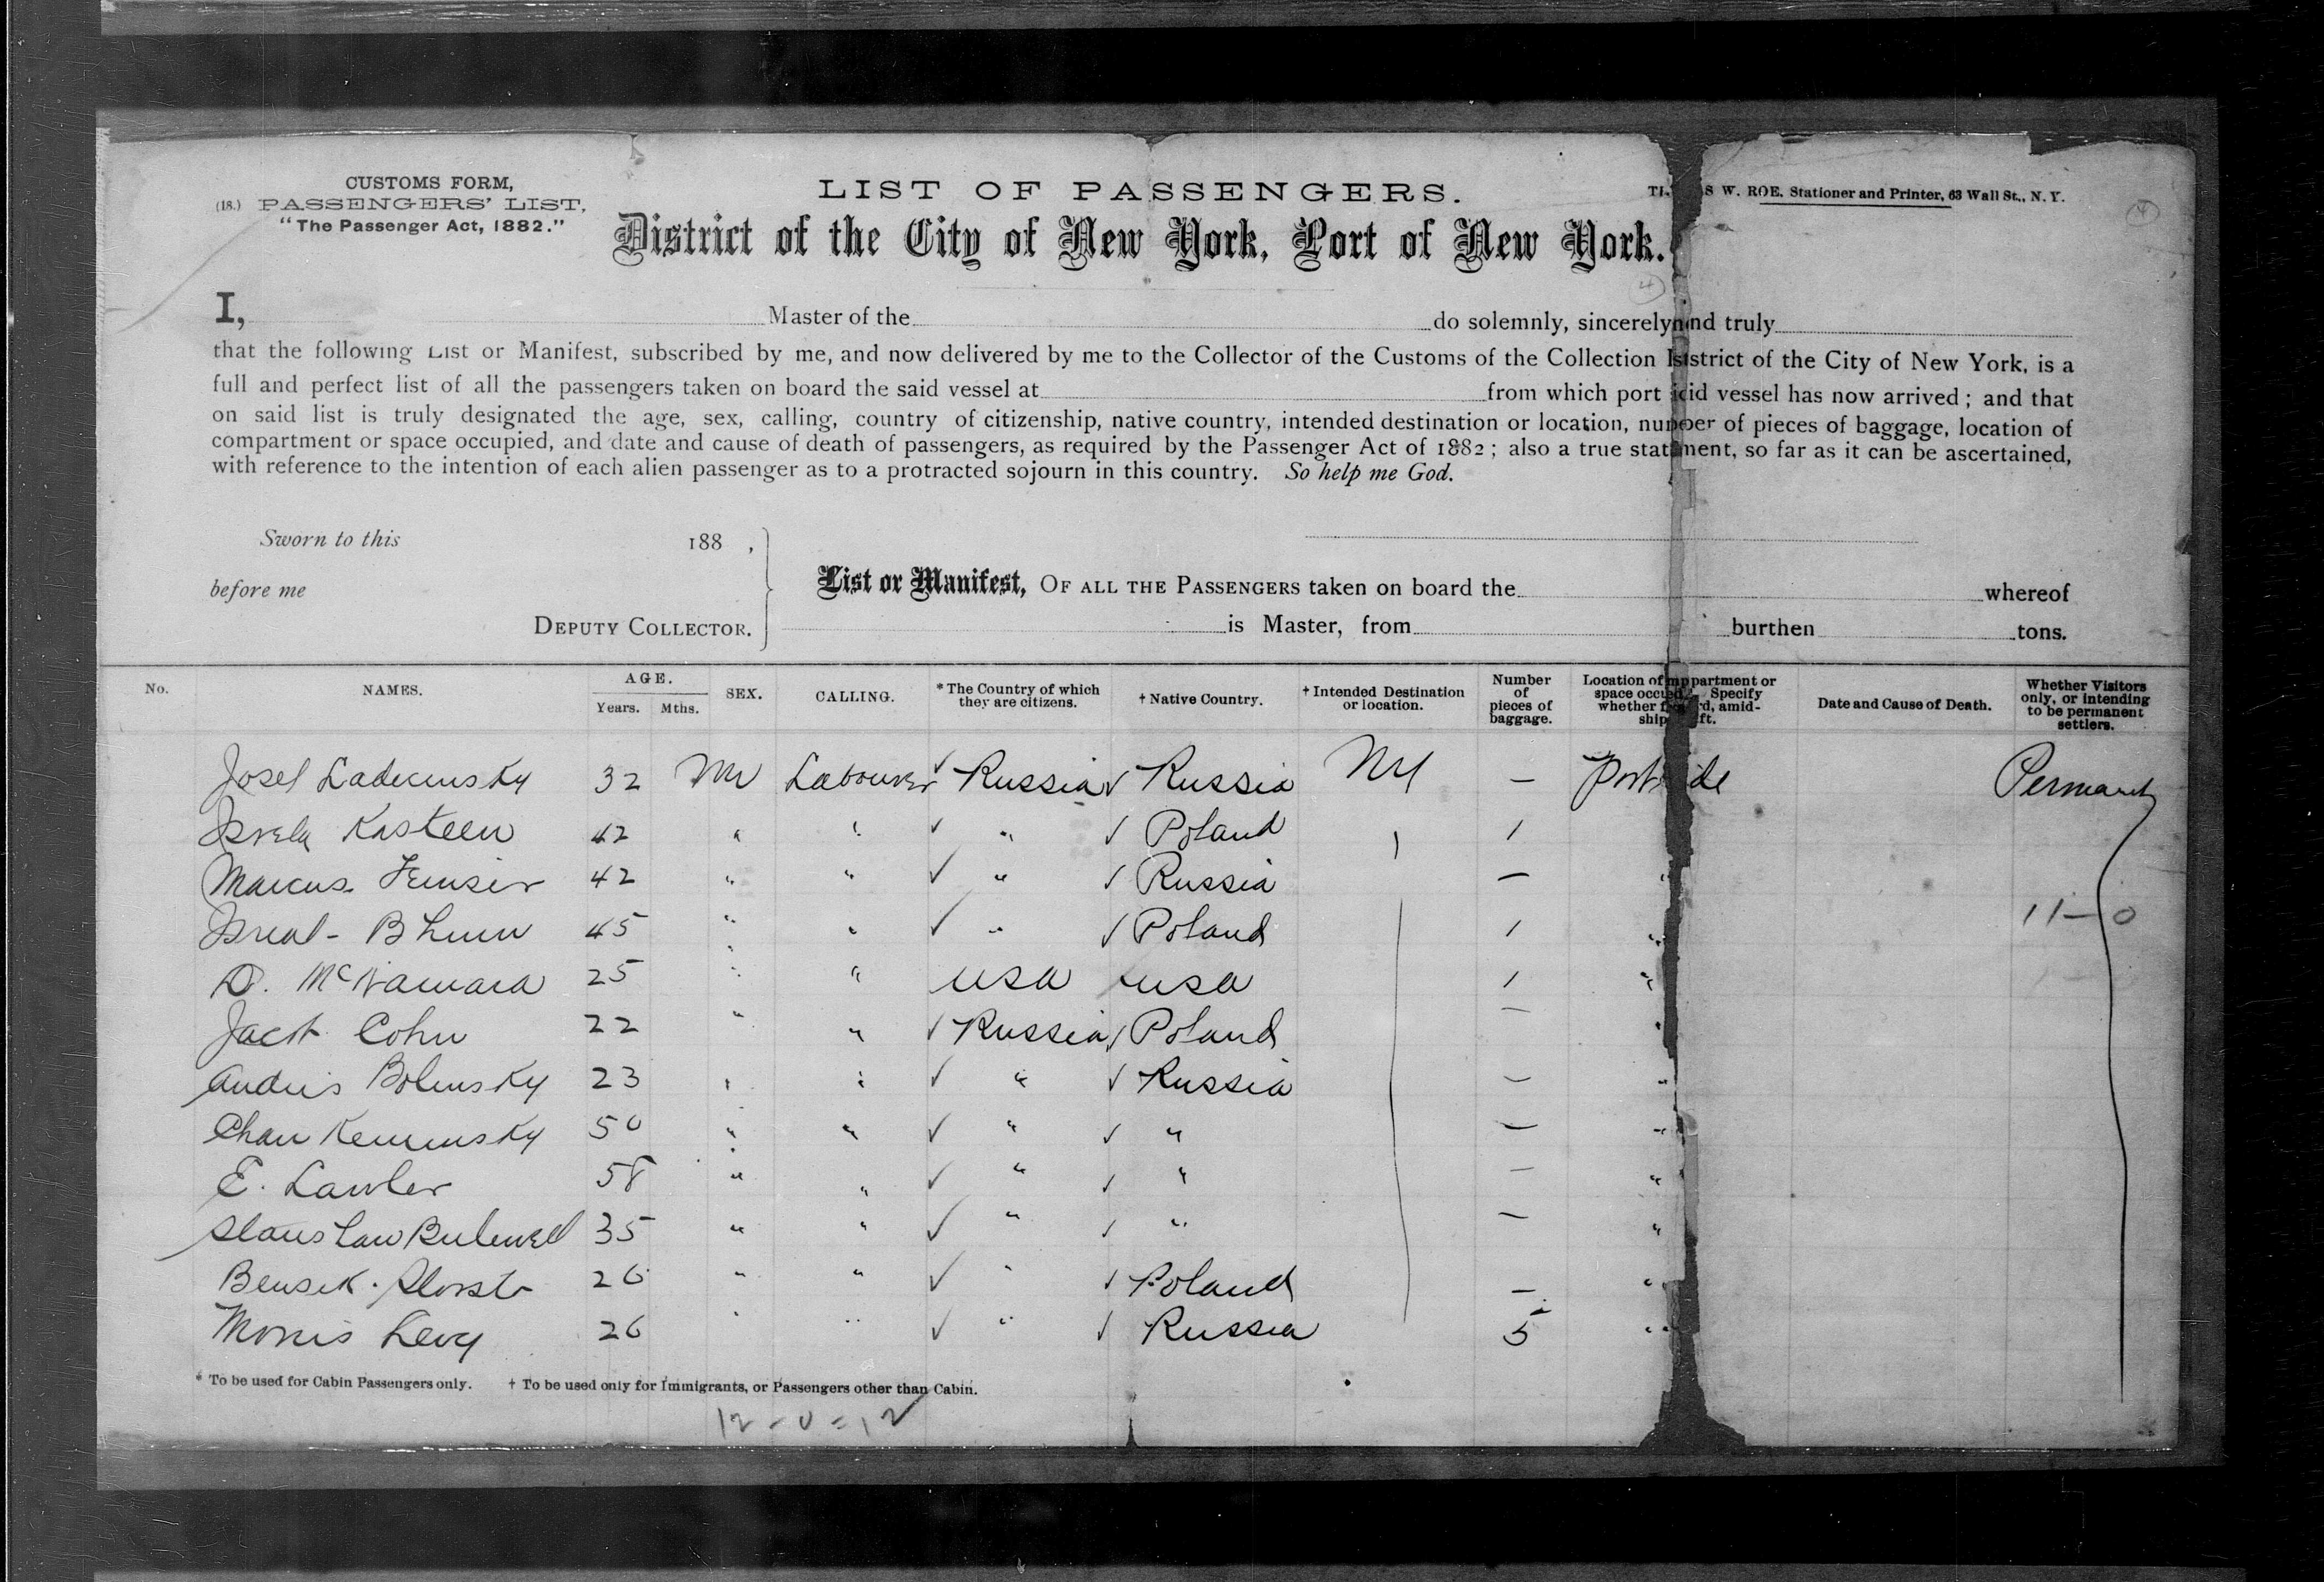 CUSTOMS FORM,
(18.) PASSENGERS' LIST,
"The Passenger Act, 1882."
LIST OF PASSENGERS.
S W. ROE, Stationer and Printer, 63 Wall St., N. Y.
4
District of the City of New York, Port of New York.
4
I, Master of the do solemnly, sincerely and truly
that the following List or Manifest, subscribed by me, and now delivered by me to the Collector of the Customs of the Collection District of the City of New York, is a
full and perfect list of all the passengers taken on board the said vessel at from which port said vessel has now arrived; and that
on said list is truly designated the age, sex, calling, country of citizenship, native country, intended destination or location, number of pieces of baggage, location of
compartment or space occupied, and date and cause of death of passengers, as required by the Passenger Act of 1882; also a true statement, so far as it can be ascertained,
with reference to the intention of each alien passenger as to a protracted sojourn in this country. So help me God.
Sworn to this 188 ,
before me
DEPUTY COLLECTOR.
List or Manifest, OF ALL THE PASSENGERS taken on board the whereof
is Master, from burthen tons.
No. NAMES. AGE. Years. Mths. SEX. CALLING. * The Country of which they are citizens. † Native Country. † Intended Destination or location. Number of pieces of baggage. Location of compartment or space occupied. Specify whether forward, amidships or aft. Date and Cause of Death. Whether Visitors only, or intending to be permanent settlers.
Josel 32 Labourer ✓ Russia ✓ Russia NY — Port side
Kasteen 42 " " ✓ " ✓ Poland 1
Marcus 42 " " ✓ " ✓ Russia — "
45 " " ✓ " ✓ Poland 1 " 11-0
D. McNamara 25 " " USA USA 1 "
Cohn 22 " " ✓ Russia ✓ Poland — "
Bolensky 23 " " ✓ " ✓ Russia — "
50 " " ✓ " ✓ " — "
E. Lawler 58 " " ✓ " ✓ " — "
35 " " ✓ " ✓ " — "
26 " " ✓ " ✓ Poland — "
Morris Levy 26 " " ✓ " ✓ Russia 5 "
* To be used for Cabin Passengers only. † To be used only for Immigrants, or Passengers other than Cabin.
12 - 0 = 12